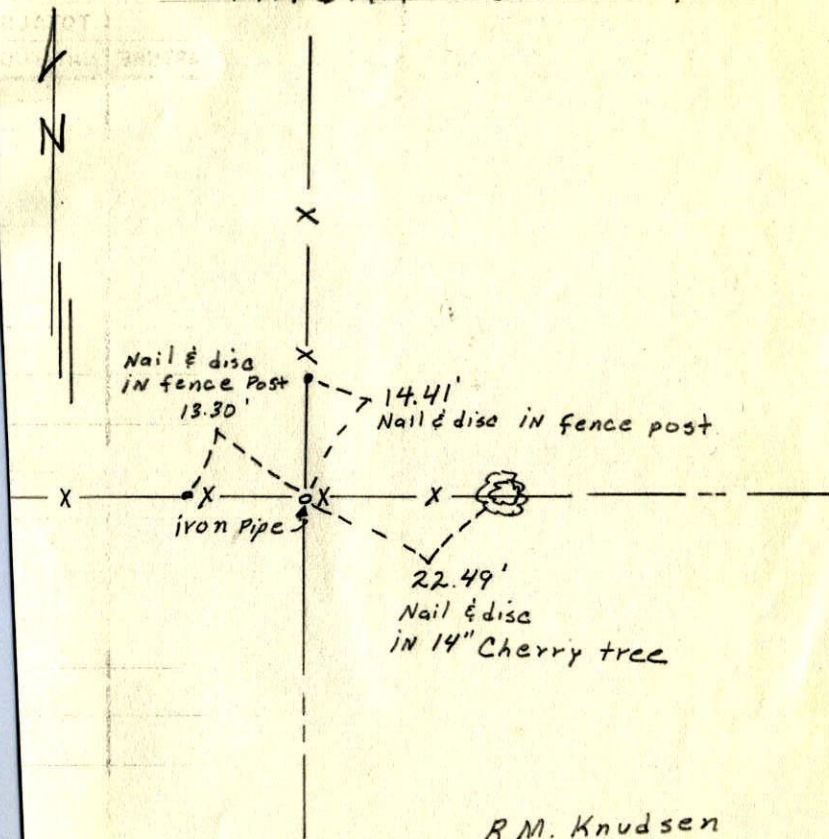 N
Nail & disc
in fence Post
13.30'
14.41'
Nail & disc in fence post
iron Pipe
22.49'
Nail & disc
in 14" Cherry tree
R.M. Knudsen